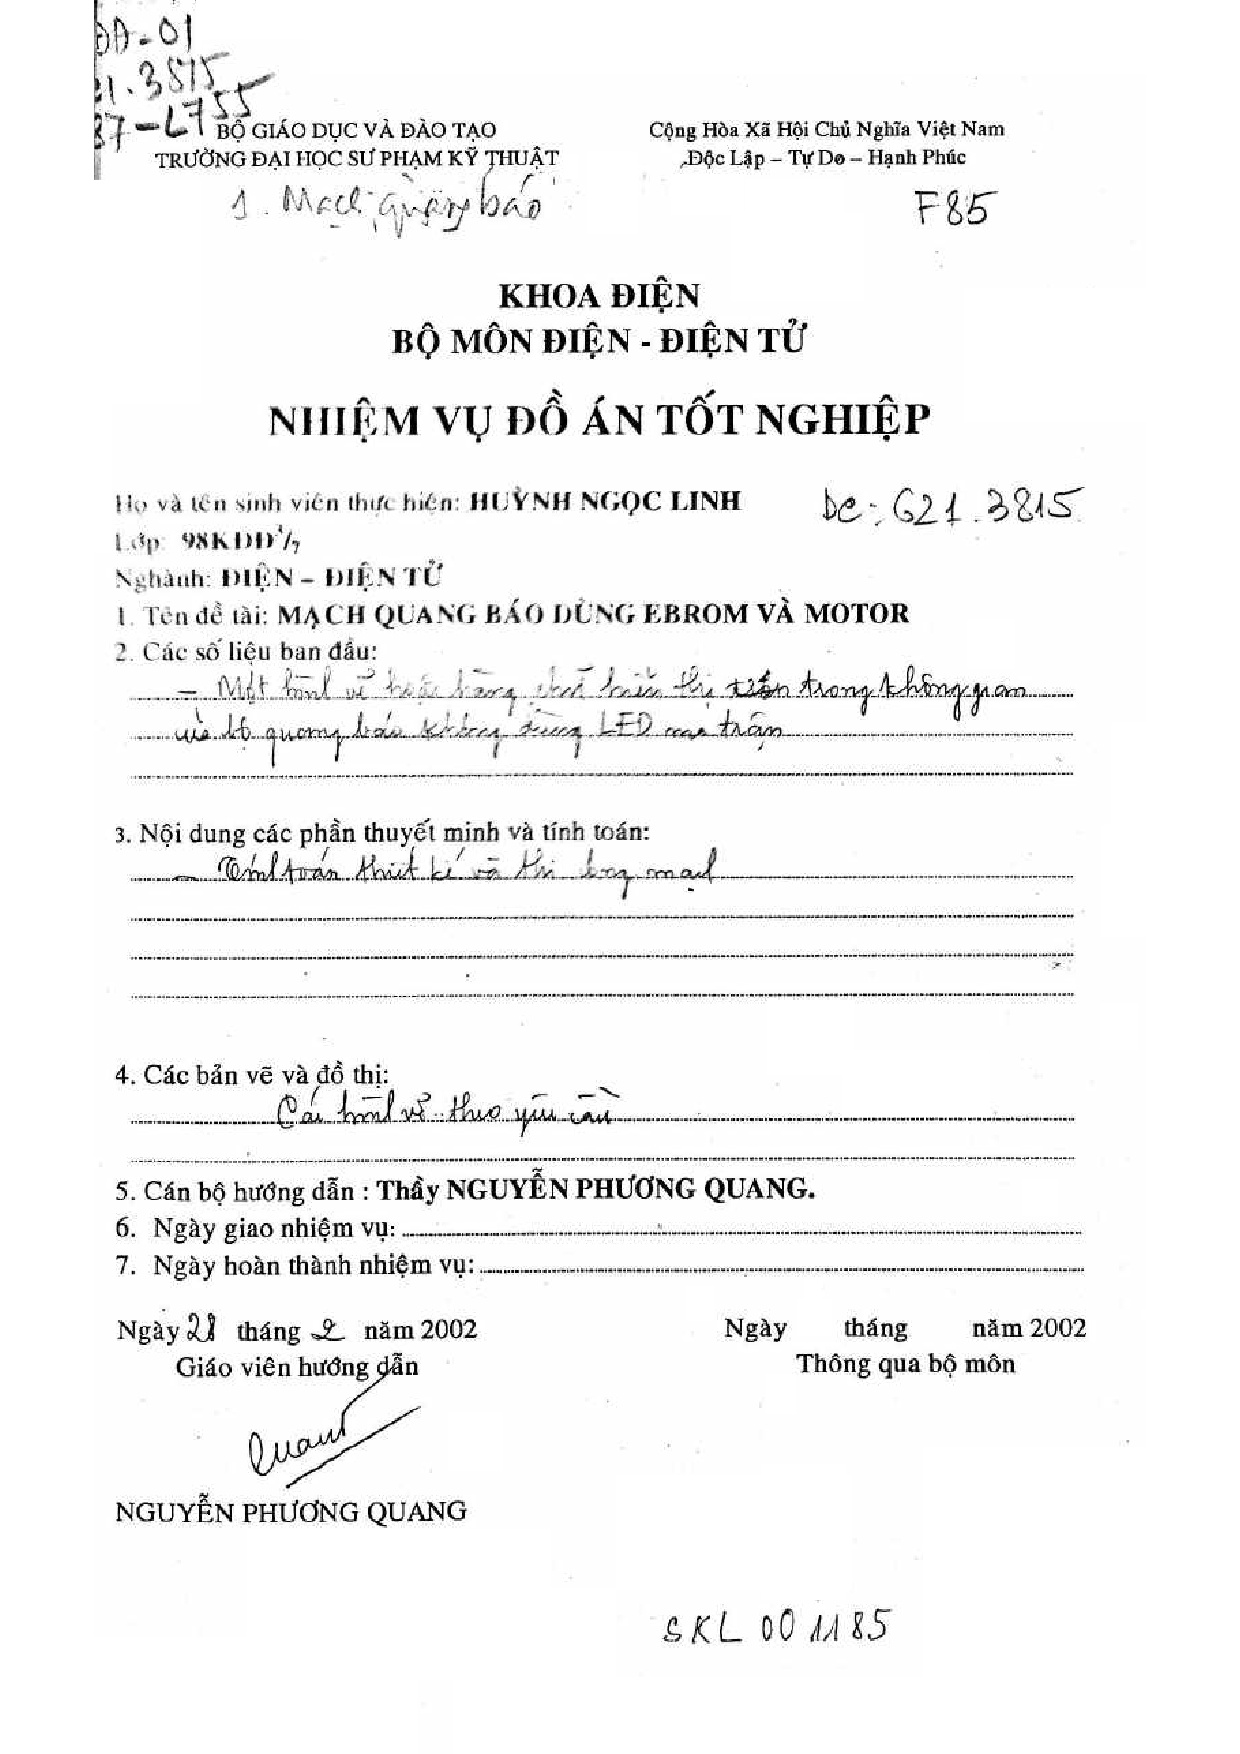 ĐĐ-01
21.3815
87-L755
BỘ GIÁO DỤC VÀ ĐÀO TẠO
TRƯỜNG ĐẠI HỌC SƯ PHẠM KỸ THUẬT
Cộng Hòa Xã Hội Chủ Nghĩa Việt Nam
Độc Lập – Tự Do – Hạnh Phúc
1. Mạch quang báo
F85
KHOA ĐIỆN
BỘ MÔN ĐIỆN - ĐIỆN TỬ
NHIỆM VỤ ĐỒ ÁN TỐT NGHIỆP
Họ và tên sinh viên thực hiện: HUỲNH NGỌC LINH
De: 621.3815
Lớp: 98KDD
Nghành: ĐIỆN – ĐIỆN TỬ
1. Tên đề tài: MẠCH QUANG BÁO DÙNG EBROM VÀ MOTOR
2. Các số liệu ban đầu:
– Một hình vẽ hoặc hàng chữ hiển thị trên trong không gian
quang báo không dùng LED ma trận
3. Nội dung các phần thuyết minh và tính toán:
– Tính toán thiết kế và thi công mạch
4. Các bản vẽ và đồ thị:
Các hình vẽ theo yêu cầu
5. Cán bộ hướng dẫn : Thầy NGUYỄN PHƯƠNG QUANG.
6. Ngày giao nhiệm vụ:
7. Ngày hoàn thành nhiệm vụ:
Ngày 28 tháng 2 năm 2002
Giáo viên hướng dẫn
Ngày tháng năm 2002
Thông qua bộ môn
Quang
NGUYỄN PHƯƠNG QUANG
SKL 001185